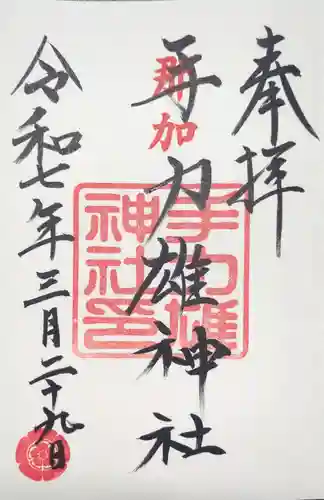 奉拝
那加
手力雄神社
手力雄
神社印
令和七年三月二十九日